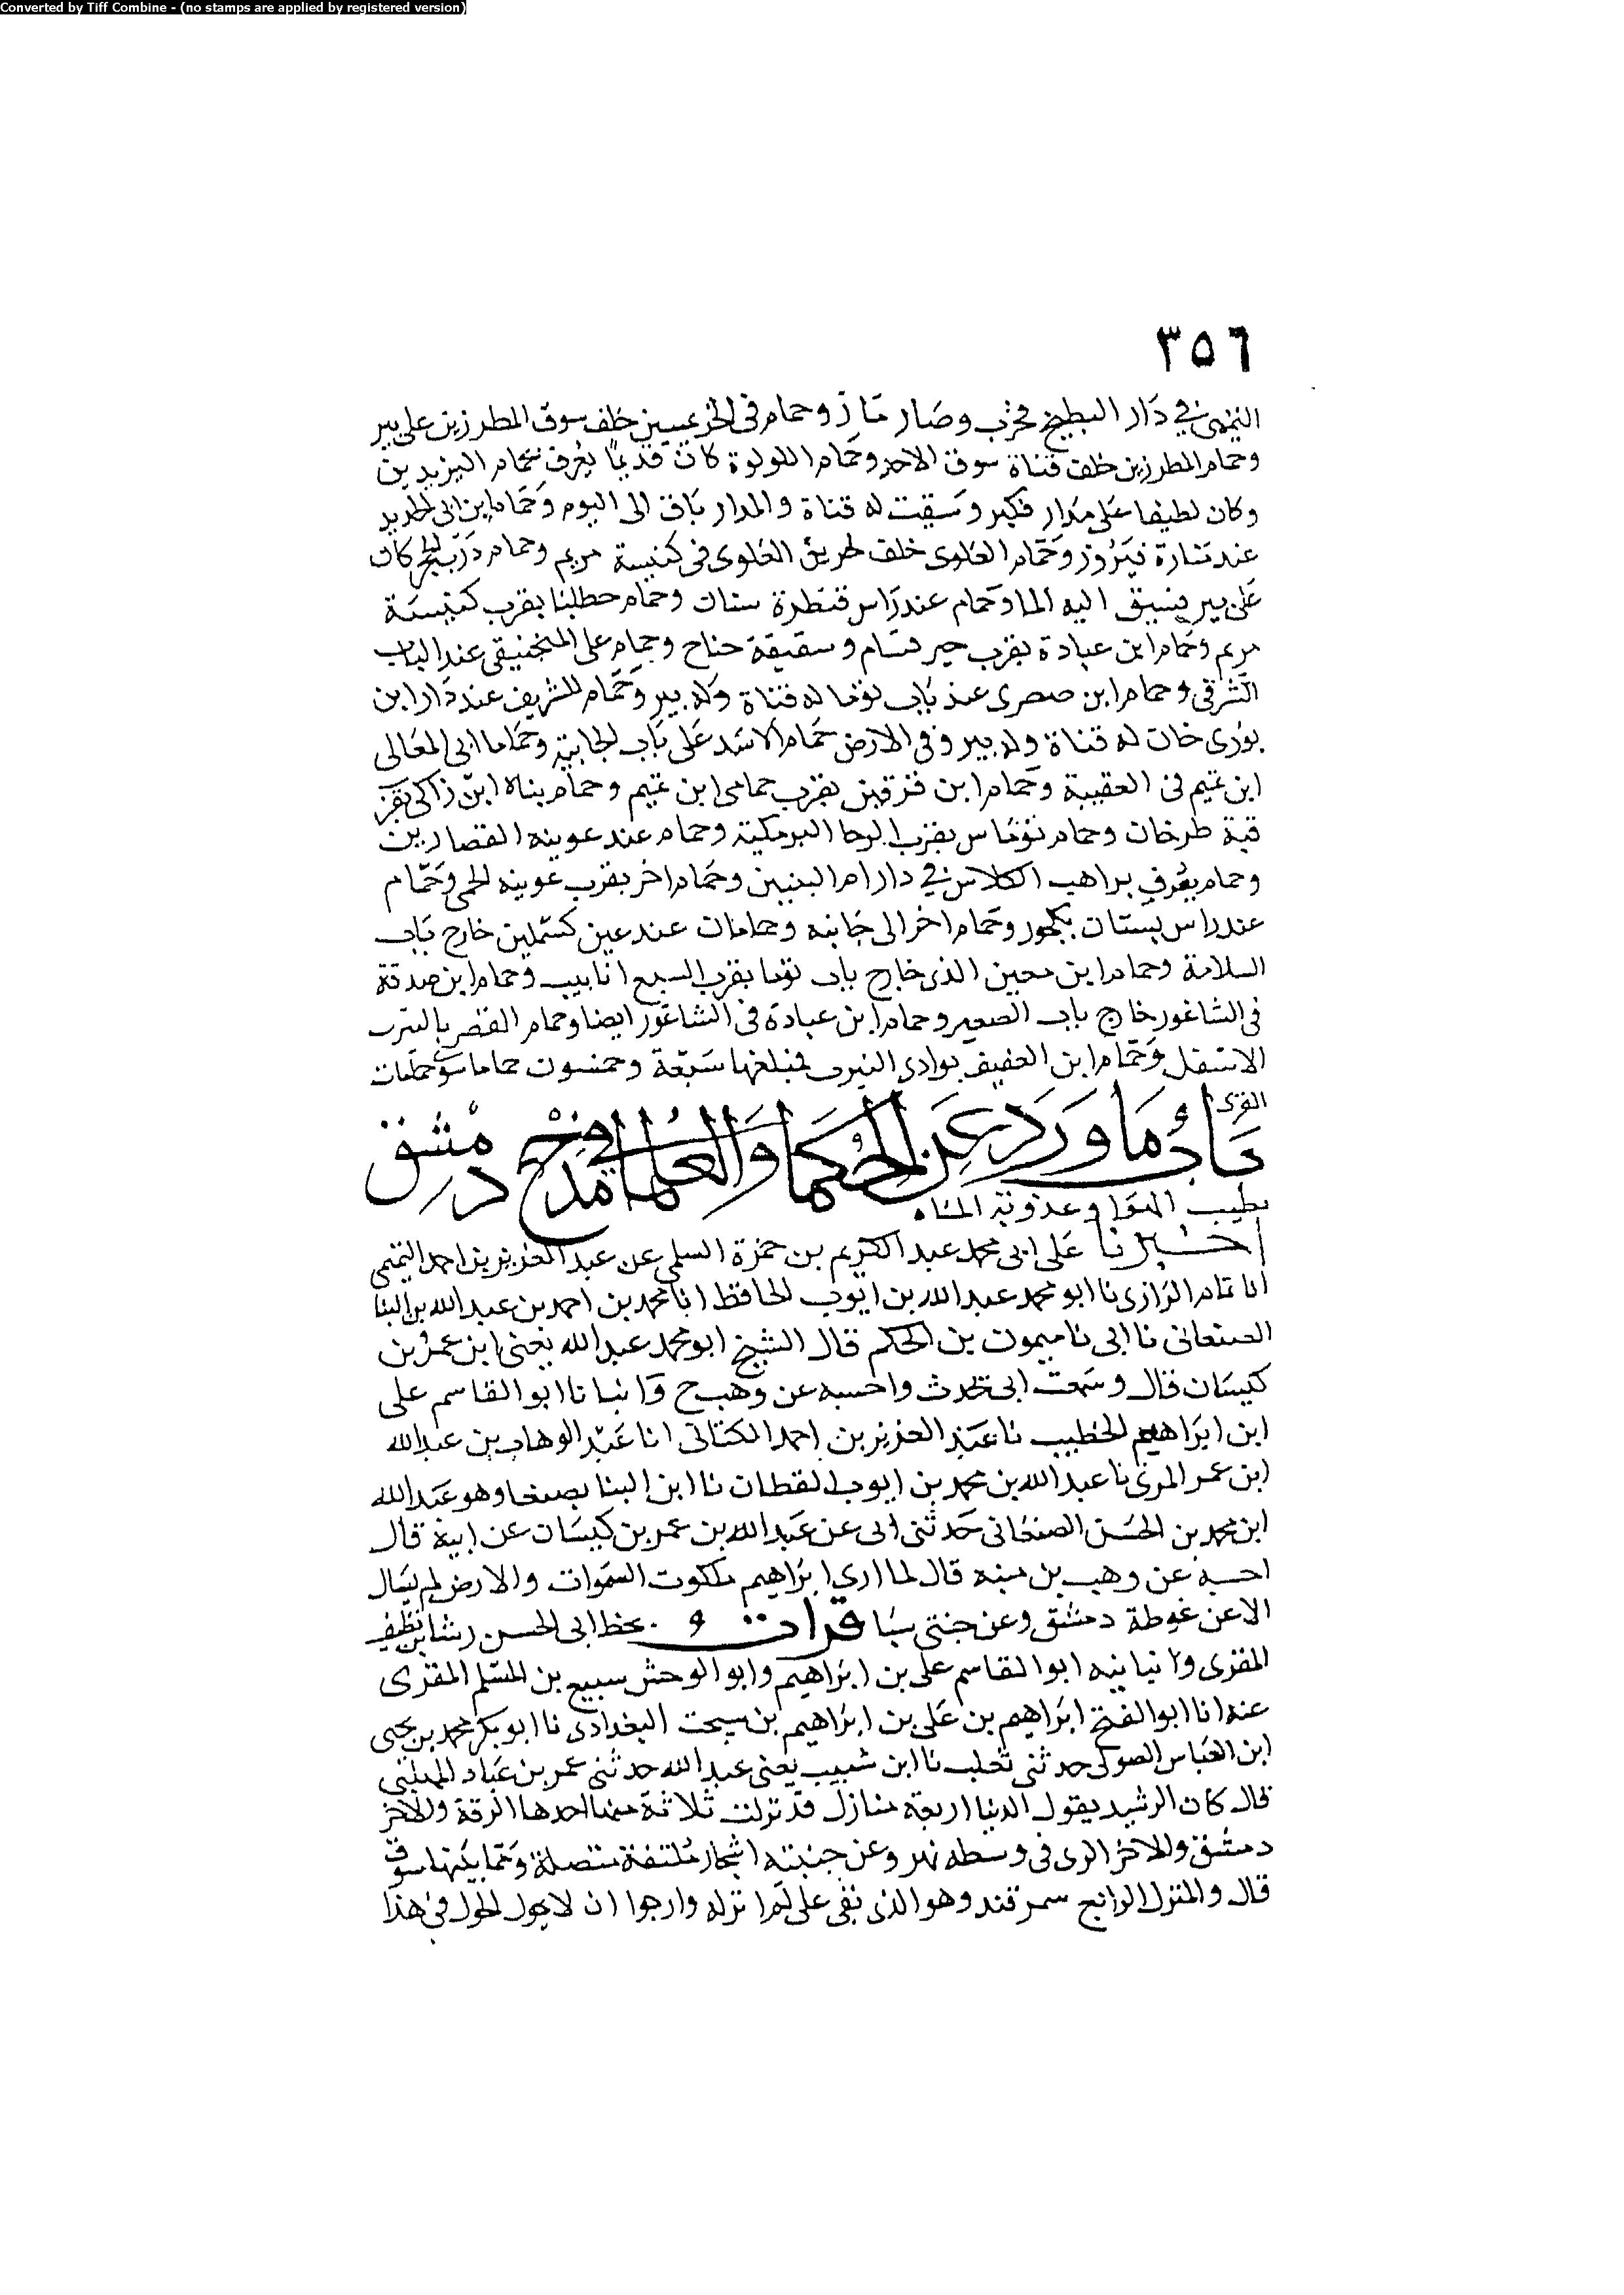 Converted by Tiff Combine - (no stamps are applied by registered version)
٣٥٦
في دار البطيخ فخرب وصار وحمام في خلف سوق المطرزين على بير
وحمام المطرزين خلف قناة سوق الاحد وحمام اللولوة كان قديما يعرف بحمام اليزيديين
وكان لطيفا على مدار فكبر وسيقت له قناة والمدار باق الى اليوم وحمام ابن ابي الحديد
عند وحمام العلوى خلف طريق العلوى فى كنيسة مريم وحمام درب الحجر كان
على بير فسيق اليه الما وحمام عند راس قنطرة سنان وحمام بقرب كنيسة
مريم وحمام ابن عبادة بقرب وسقيفة جناح وحمام على المنجنيقى عند الباب
الشرقى وحمام ابن صصرى عند باب توما له قناة وله بير وحمام للشريف عند دار ابن
بورى خان له قناة وله بير وفى الارض حمام الاسد على باب الجابية وحماما ابى المعالى
ابن تميم فى العقيبة وحمام ابن بقرب حمامى ابن تميم وحمام بناه ابن زاكى بقر
قبة طرخان وحمام نوماس بقرب الرحا البرمكية وحمام عند عوينه القصارين
وحمام يعرف براهب الكلاس في دار ام البنين وحمام اخر بقرب عوينه الحمى وحمام
عند راس بستان وحمام اخر الى جانبه وحمامان عند عين كسملين خارج باب
السلامة وحمام ابن الذى خارج باب توما بقرب السبع انابيب وحمام ابن صدقة
فى الشاغور خارج باب الصغير وحمام ابن عبادة فى الشاغور ايضا وحمام القصر بالنيرب
الاسفل وحمام ابن العفيف بوادى النيرب فمبلغها سبعة وخمسون حماما سوى حمامات
القرى
باب ما ورد عن الحكما والعلما في مدح دمشق
بطيب الهوا وعذوبة الماء
اخبرنا على ابى محمد عبد الكريم بن حمزة السلمى عن عبد العزيز بن احمد التميمى
انا تمام الرازى نا ابو محمد عبد الله بن ايوب الحافظ انا محمد بن احمد بن عبد الله بن البنا
الصنعانى نا ابى نا ميمون بن الحكم قال الشيخ ابو محمد عبد الله يعنى ابن عمر بن
كيسان قال وسمعت ابى يحدث واحسبه عن وهب ح وانبانا ابو القاسم على
ابن ابراهيم الخطيب نا عبد العزيز بن احمد الكتانى انا عبد الوهاب بن عبد الله
ابن عمر المرى نا عبد الله بن محمد بن ايوب القطان نا ابن البنا بصنعا وهو عبد الله
ابن محمد بن الحسن الصنعانى حدثنى ابى عن عبد الله بن عمر بن كيسان عن ابيه قال
احسبه عن وهب بن منبه قال لما ارى ابراهيم ملكوت السموات والارض لم يسال
الا عن غوطة دمشق وعن جنتى سبا قرات بخط ابى الحسن رشا بن نظيف
المقرى وانبانيه ابو القاسم على بن ابراهيم وابو الوحش سبيع بن المسلم المقرى
عنه انا ابو الفتح ابراهيم بن على بن ابراهيم بن سيبخت البغدادى نا ابو بكر محمد بن يحيى
ابن العباس الصولى حدثنى ثعلب نا ابن شبيب يعنى عبد الله حدثنى عمر بن عباد المهلبى
قال كان الرشيد يقول الدنيا اربعة منازل قد نزلت ثلاثة منها احدها الرقة والاخر
دمشق والاخر الرى فى وسطه نهر وعن جنبته اشجار ملتفة متصلة وبينها سوق
قال والمنزل الرابع سمرقند وهو الذى بقى على لم انزله وارجو ان لا يحول الحول في هذا